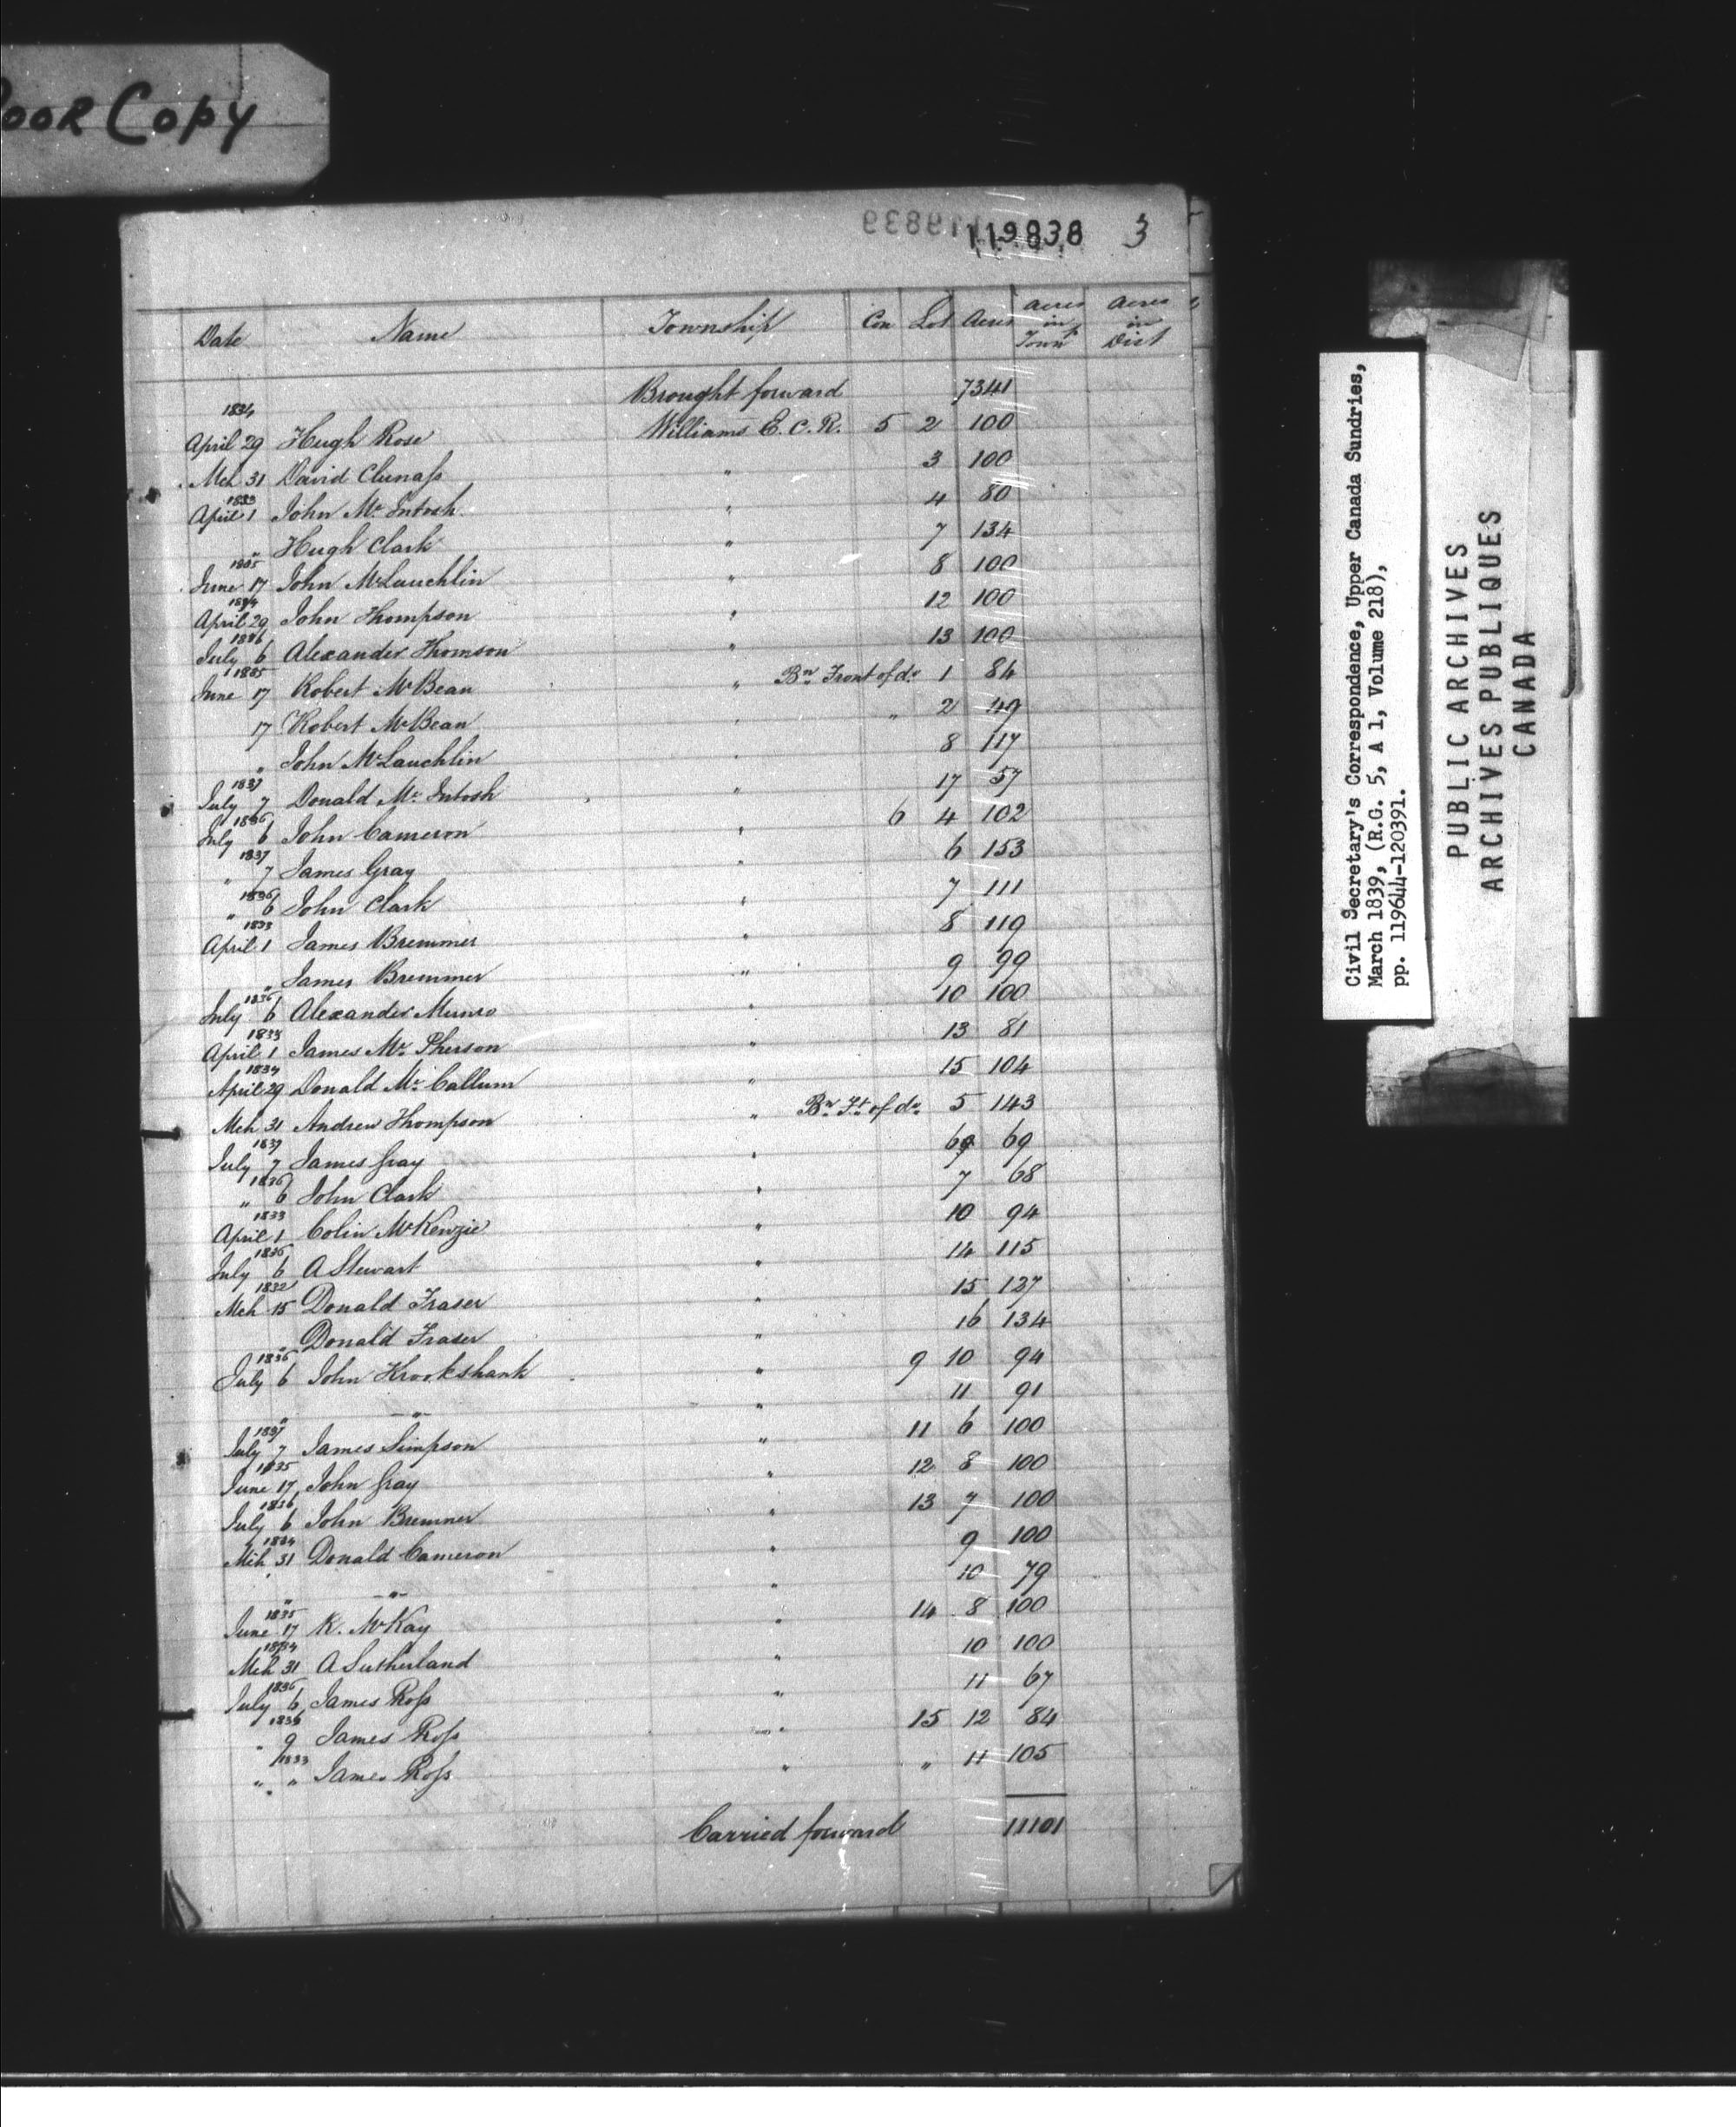 oor Copy
119839
119838 3
Date Name Township Con Lot Acres Acres in Townp Acres in Dist
Brought forward 7341
1834 April 29 Hugh Rose Williams E. C. R. 5 2 100
Mch 31 David Clunass " 3 100
1833 April 1 John McIntosh " 4 80
" Hugh Clark " 7 134
1835 June 17 John McLauchlin " 8 100
1834 April 29 John Thompson " 12 100
1836 July 6 Alexander Thomson " 13 100
1835 June 17 Robert McBean " Bn Front of do 1 84
17 Robert McBean " " 2 49
" John McLauchlin " 8 117
1837 July 7 Donald McIntosh " 17 57
1836 July 6 John Cameron " 6 4 102
1837 " 7 James Gray " 6 153
1836 " 6 John Clark " 7 111
1833 April 1 James Bremmer " 8 119
" James Bremmer " 9 99
1836 July 6 Alexander Munro " 10 100
1833 April 1 James McPherson " 13 81
1834 April 29 Donald McCallum " 15 104
Mch 31 Andrew Thompson " Bn Ft of do 5 143
1837 July 7 James Gray " 6 69
1836 " 6 John Clark " 7 68
1833 April 1 Colin McKenzie " 10 94
1836 July 6 A Stewart " 14 115
1832 Mch 15 Donald Fraser " 15 127
" Donald Fraser " 16 134
1836 July 6 John Krookshank " 9 10 94
" " " 11 91
1837 July 7 James Simpson " 11 6 100
1835 June 17 John Gray " 12 8 100
1836 July 6 John Bremner " 13 7 100
1834 Mch 31 Donald Cameron " 9 100
" " " 10 79
1835 June 17 K. McKay " 14 8 100
1834 Mch 31 A Sutherland " 10 100
1836 July 6 James Ross " 11 67
1836 " 9 James Ross " 15 12 84
1833 " " James Ross " " 11 105
Carried forward 11101
Civil Secretary's Correspondence, Upper Canada Sundries,
March 1839, (R.G. 5, A 1, Volume 218),
pp. 119644-120391.
PUBLIC ARCHIVES
ARCHIVES PUBLIQUES
CANADA